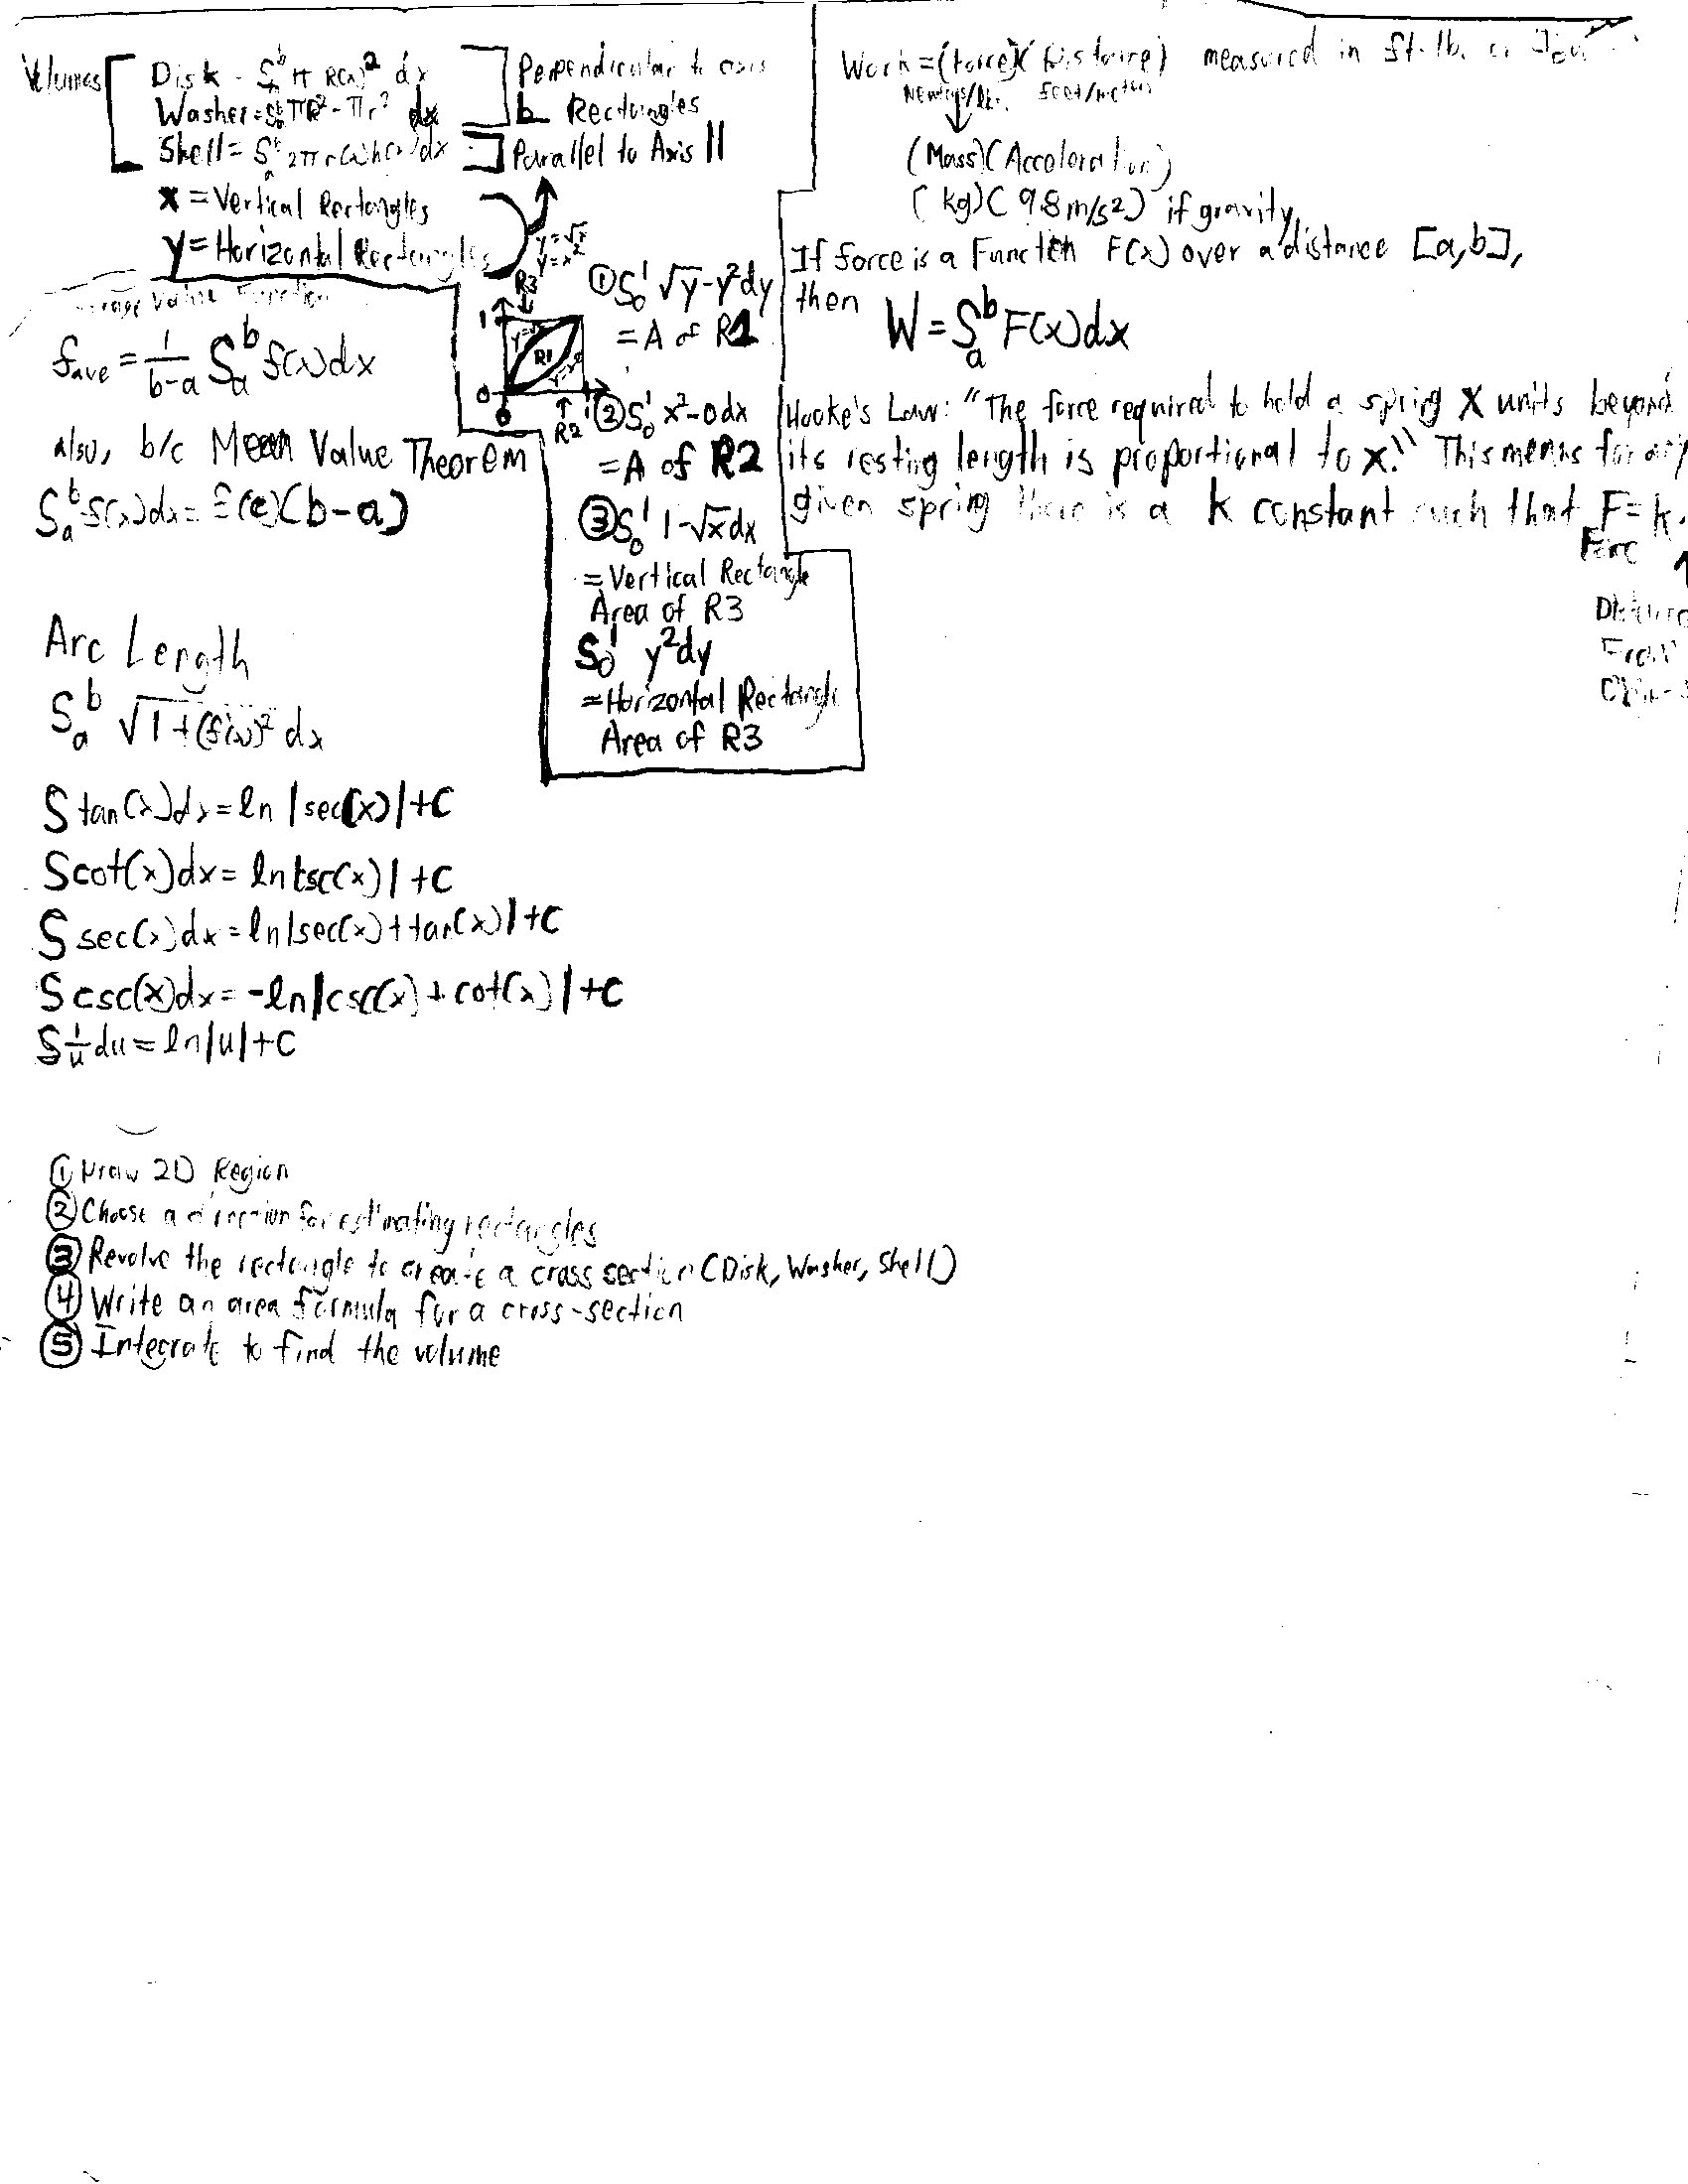 Volumes
Disk = S_a^b π R(x)^2 dx
Washer = S_a^b πR^2 - πr^2 dx
Shell = S_a^b 2πr(x)h(x)dx
Perpendicular to axis
Rectangles
Parallel to Axis ||
x = Vertical Rectangles
y = Horizontal Rectangles
y=√x
y=x^2
R3
1
R1
0
0
1
R2
① S_0^1 √y-y^2dy
= A of R1
② S_0^1 x^2-0dx
= A of R2
③ S_0^1 1-√x dx
= Vertical Rectangle
Area of R3
S_0^1 y^2dy
= Horizontal Rectangle
Area of R3
Average Value Function
f_ave = 1/(b-a) S_a^b f(x)dx
also, b/c Mean Value Theorem
S_a^b f(x)dx = f(c)(b-a)
Arc Length
S_a^b √1+(f'(x))^2 dx
S tan(x)dx = ln|sec(x)|+C
S cot(x)dx = ln|csc(x)|+C
S sec(x)dx = ln|sec(x)+tan(x)|+C
S csc(x)dx = -ln|csc(x)+cot(x)|+C
S 1/u du = ln|u|+C
① Draw 2D Region
② Choose a direction for estimating rectangles
③ Revolve the rectangle to create a cross section (Disk, Washer, Shell)
④ Write an area formula for a cross-section
⑤ Integrate to find the volume
Work = (Force)(Distance) measured in ft-lb. or
Newtons/lbs. feet/meters
(Mass)(Acceleration)
(kg)(9.8m/s2) if gravity.
If force is a Function F(x) over a distance [a,b],
then
W = S_a^b F(x)dx
Hooke's Law: "The force required to hold a spring X units beyond
its resting length is proportional to x." This means for any
given spring there is a k constant such that F=k
From